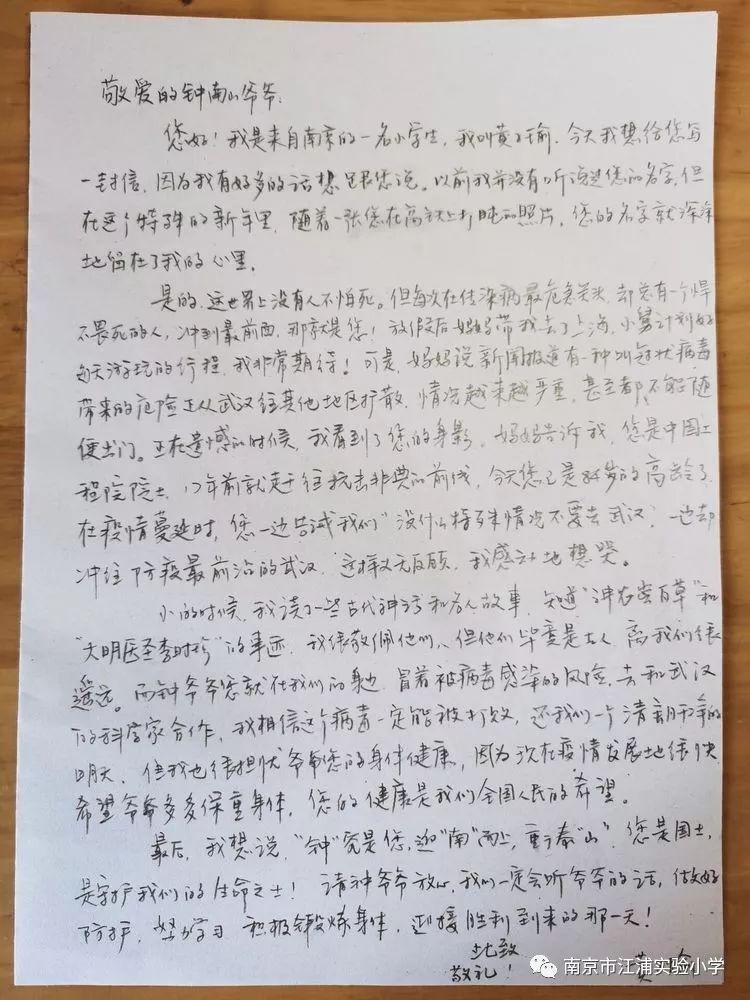 敬爱的钟南山爷爷:
您好!我是来自南京的一名小学生,我叫黄子瑜.今天我想给您写
一封信,因为我有好多的话想跟您说。以前我并没有听说过您的名字,但
在这个特殊的新年里,随着一张您在高铁上打盹的照片,您的名字就深深
地留在了我的心里。
是的,这世界上没有人不怕死。但每次在传染病最危急关头,却总有一个悍
不畏死的人,冲到最前面,那就是您!放假后妈妈带我去了上海,小舅计划好
每天游玩的行程,我非常期待!可是,妈妈说新闻报道有一种叫冠状病毒
带来的危险正从武汉往其他地区扩散,情况越来越严重,甚至都不能随
便出门。正在遗憾的时候,我看到了您的身影,妈妈告诉我,您是中国工
程院院士,17年前就赶往抗击非典的前线,今天您已是84岁的高龄了,
在疫情蔓延时,您一边告诫我们"没什么特殊情况不要去武汉",一边却
冲往防疫最前沿的武汉,这样义无反顾,我感动地想哭。
小的时候,我读了一些古代神话和名人故事,知道"神农尝百草"和
"大明医圣李时珍"的事迹,我很敬佩他们,但他们毕竟是古人,离我们很
遥远。而钟爷爷您就在我们的身边,冒着被病毒感染的风险,去和武汉
的科学家合作,我相信这个病毒一定能被打败,还我们一个清新干净的
明天,但我也很担忧爷爷您的身体健康,因为次在疫情发展地很快,
希望爷爷多多保重身体,您的健康是我们全国人民的希望。
最后,我想说,"钟"究是您,迎"南"而上,重于泰"山",您是国士,
是守护我们的生命之士!请钟爷爷放心,我们一定会听爷爷的话,做好
防护,努力学习,积极锻炼身体,迎接胜利到来的那一天!
此致
敬礼!
黄
南京市江浦实验小学